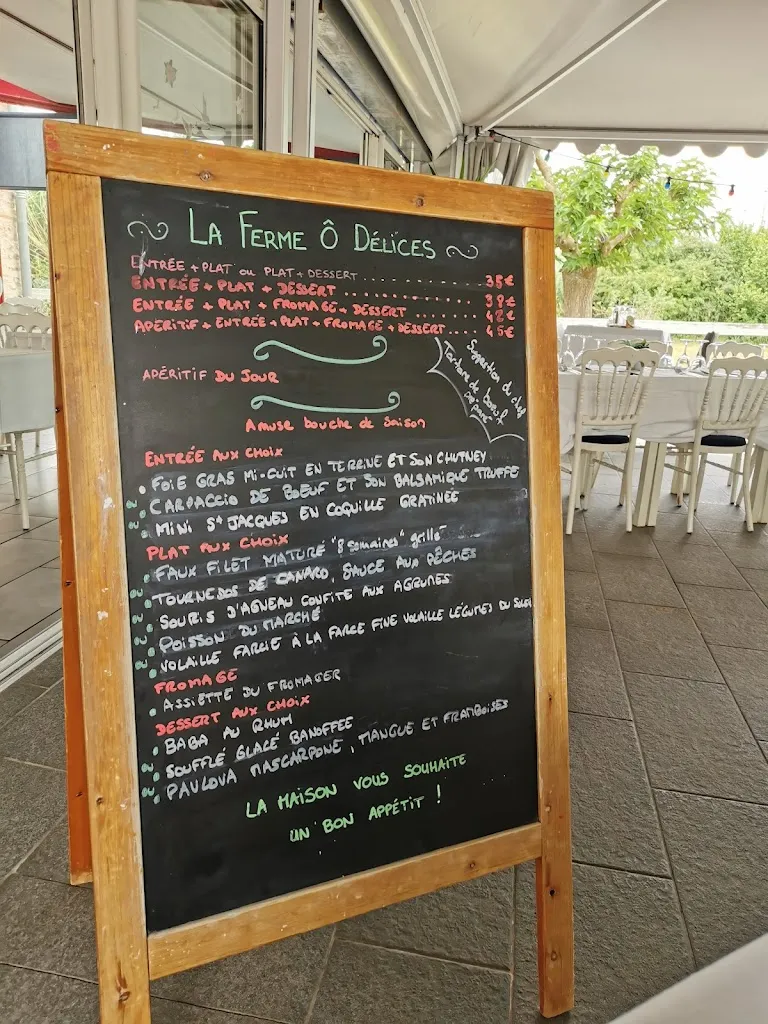 LA FERME Ô DÉLICES
ENTRÉE + PLAT OU PLAT + DESSERT ............ 35€
ENTRÉE + PLAT + DESSERT ............ 39€
ENTRÉE + PLAT + FROMAGE + DESSERT ........ 42€
APÉRITIF + ENTRÉE + PLAT + FROMAGE + DESSERT .... 45€
Suggestion du chef
Tartare de boeuf
préparé
APÉRITIF DU JOUR
Amuse bouche de Saison
ENTRÉE AUX CHOIX
• FOIE GRAS MI-CUIT EN TERRINE ET SON CHUTNEY
• CARPACCIO DE BOEUF ET SON BALSAMIQUE TRUFFE
• MINI ST JACQUES EN COQUILLE GRATINÉE
PLAT AUX CHOIX
• FAUX FILET MATURÉ "8 semaines" grillé
• TOURNEDOS DE CANARD, SAUCE AUX PÊCHES
• SOURIS D'AGNEAU CONFITE AUX AGRUMES
• POISSON DU MARCHÉ
• VOLAILLE FARCIE À LA FARCE FINE VOLAILLE LÉGUMES DU SOLEIL
FROMAGE
• ASSIETTE DU FROMAGER
DESSERT AUX CHOIX
• BABA AU RHUM
• SOUFFLÉ GLACÉ BANOFFEE
• PAVLOVA MASCARPONE, MANGUE ET FRAMBOISES
LA MAISON VOUS SOUHAITE
UN BON APPÉTIT !